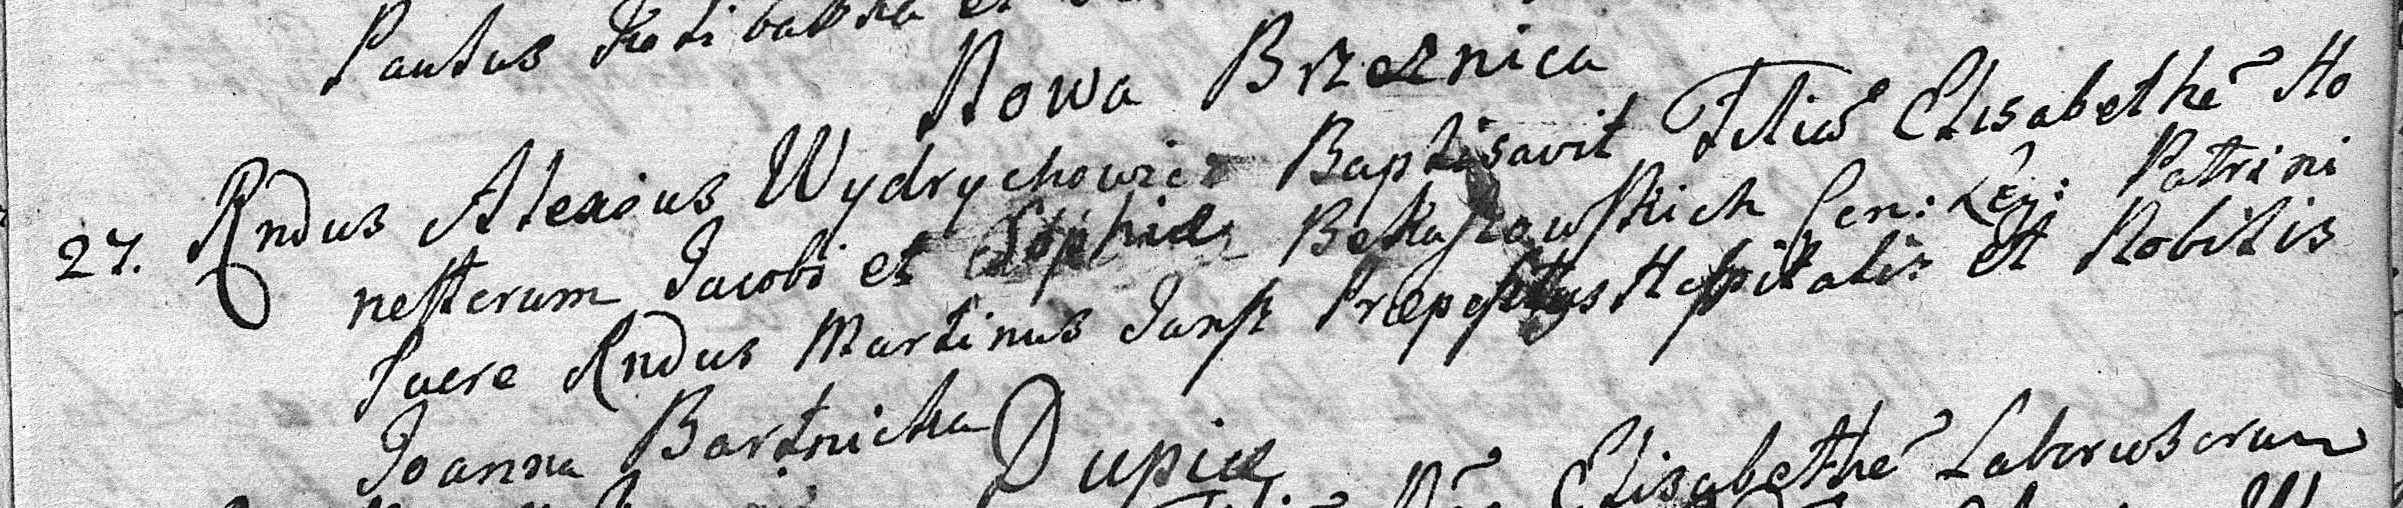 Paulus et
Nowa Brzeznica
27. Rndus Alexius Wydrychowicz Baptisavit Filiã Elisabethẽ Ho
nestorum Jacobi et Sophiæ Bekaszowskich Con: Leg: Patrini
fuere Rndus Martinus Præpositus Hospitalis et Nobilis
Joanna Bartnicka
Dupice
Elisabethẽ Laboriosorum